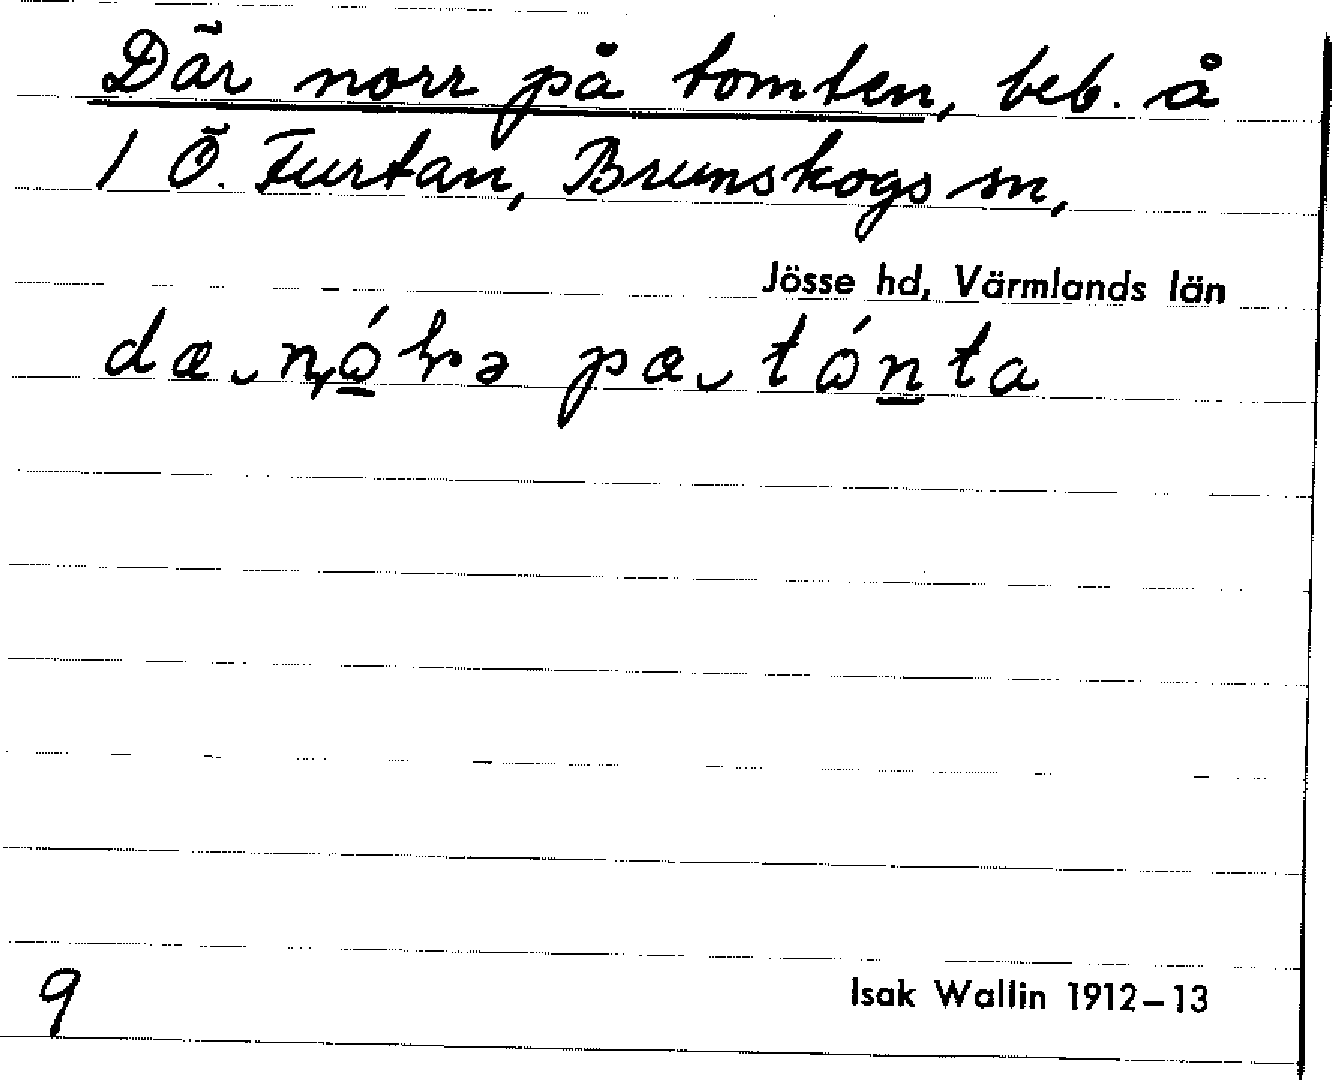 Där norr på tomten, beb. å
1 Ö. Furtan, Brunskogs sn,
Jösse hd, Värmlands län
9
Isak Wallin 1912–13